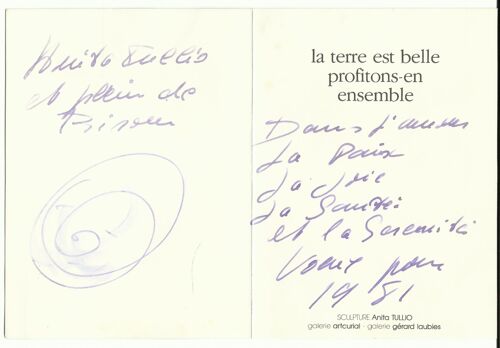 Anita Tullio
et plein de
la terre est belle
profitons-en
ensemble
Dans l'amour
La Paix
La Joie
La Santé
et la Sérénité
Voeux pour
1981
SCULPTURE Anita TULLIO
galerie artcurial - galerie gérard laubies